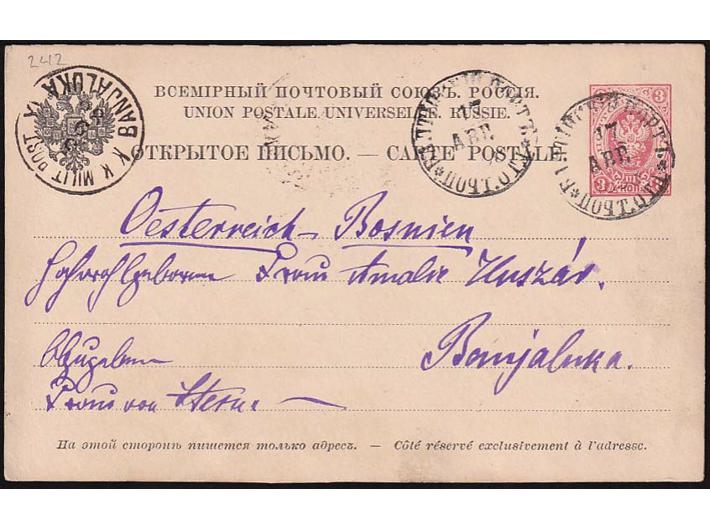 2412
K.K. MILIT. POST
BANJALUKA
ВСЕМІРНЫЙ ПОЧТОВЫЙ СОЮЗЪ. РОССІЯ.
UNION POSTALE UNIVERSELLE. RUSSIE.
ОТКРЫТОЕ ПИСЬМО. — CARTE POSTALE
17
АВГ.
17
АВГ.
3
3
Oesterreich - Bosnien
Hochwohlgeboren Frau Amalie Huszár.
Banjaluka.
Frau von Stern
На этой сторонѣ пишется только адресъ. — Côté réservé exclusivement à l'adresse.